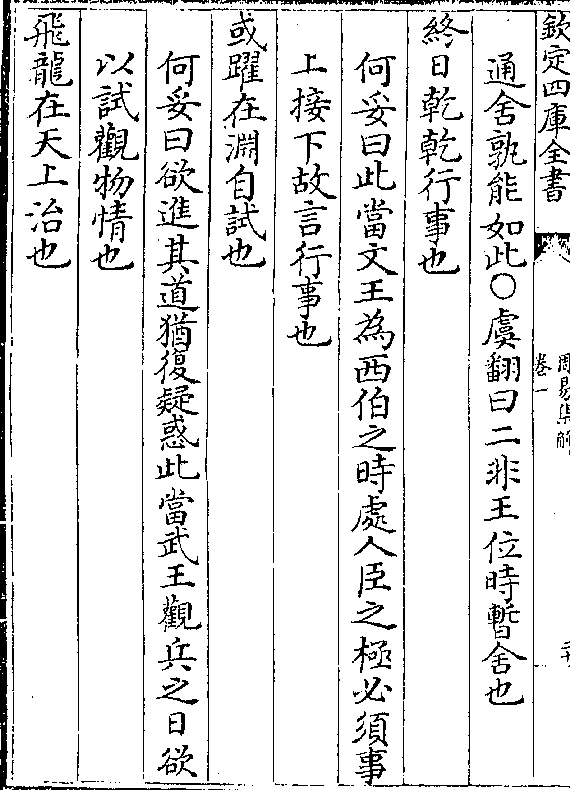 欽定四庫全書
周易集解
卷一
通舍孰能如此〇虞翻曰二非王位時暫舍也
終日乾乾行事也
何妥曰此當文王為西伯之時處人臣之極必須事
上接下故言行事也
或躍在淵自試也
何妥曰欲進其道猶復疑惑此當武王觀兵之日欲
以試觀物情也
飛龍在天上治也